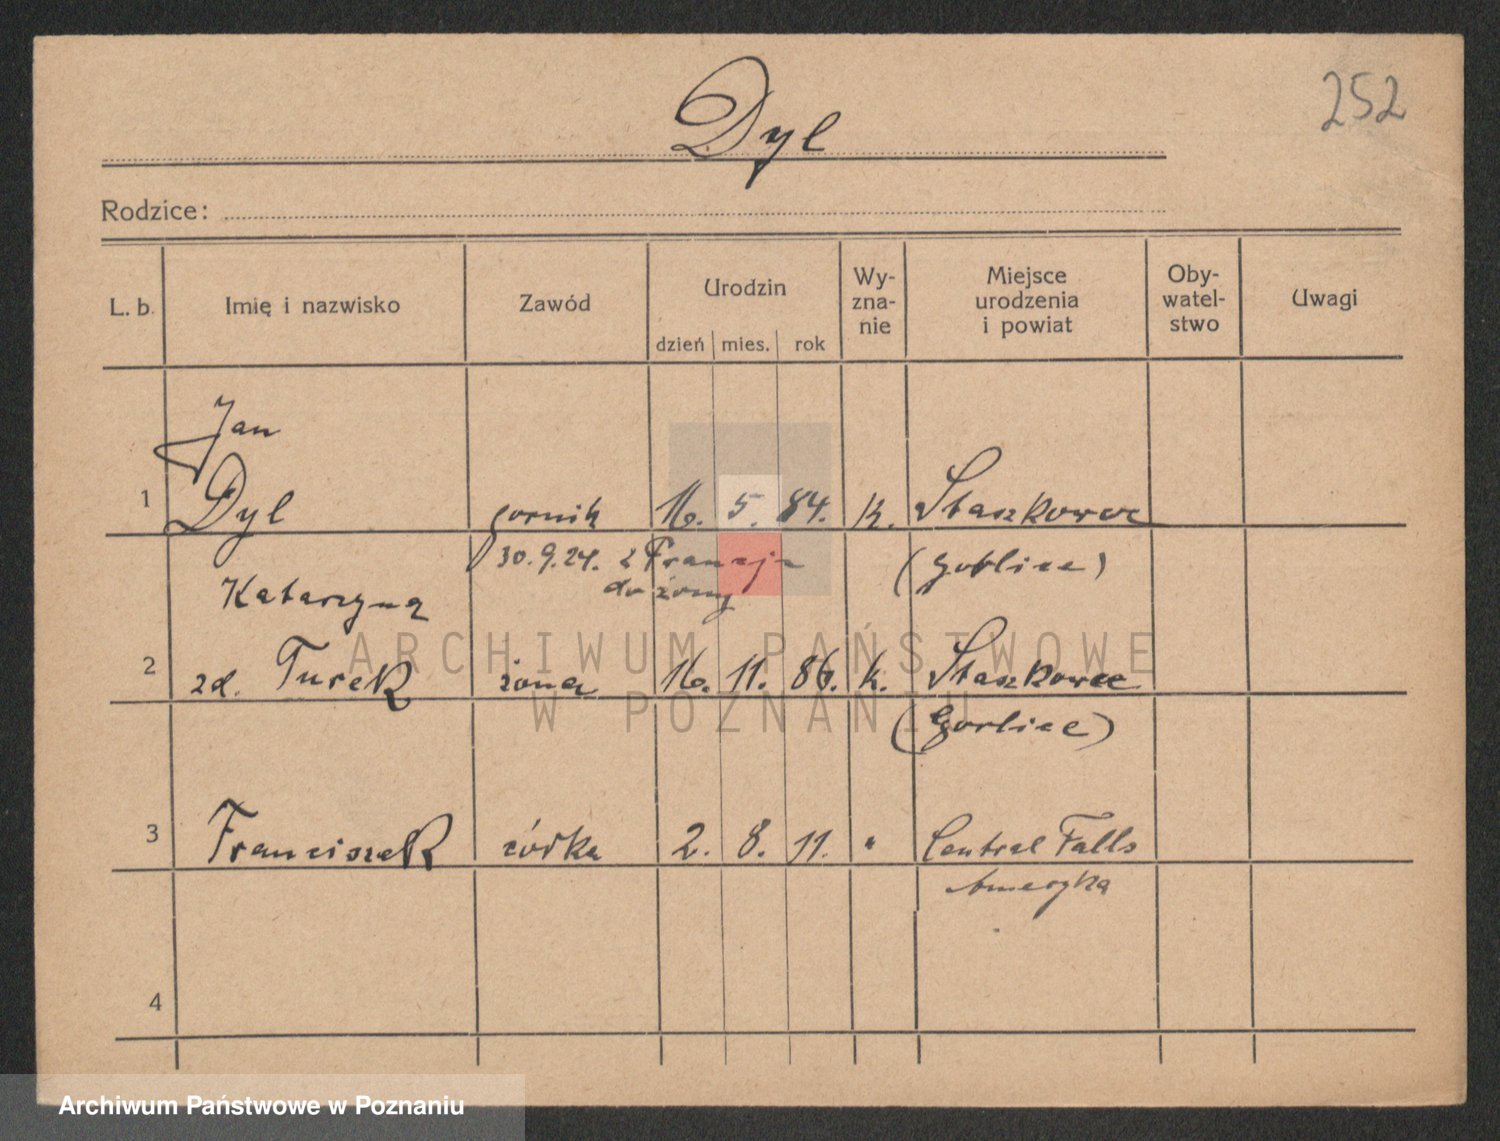 252
Dyl
Rodzice:
L. b. Imię i nazwisko Zawód Urodzin dzień mies. rok Wy-zna-nie Miejsce urodzenia i powiat Oby-watel-stwo Uwagi
Jan
1 Dyl gornik 16. 5. 84. k. Staszkowce
30.9.24. z Francji (Gorlice)
do żony
Katarzyna
2 zd. Turek żona 16. 11. 86. k. Staszkowce
(Gorlice)
3 Franciszek córka 2. 8. 11. " Central Falls
Ameryka
4
ARCHIWUM PAŃSTWOWE
W POZNANIU
Archiwum Państwowe w Poznaniu